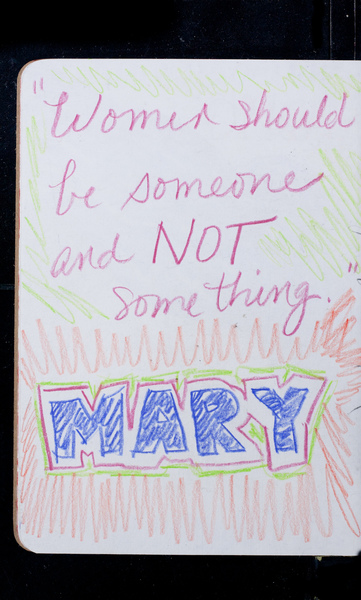 "Women should
be someone
and NOT
something."
MARY